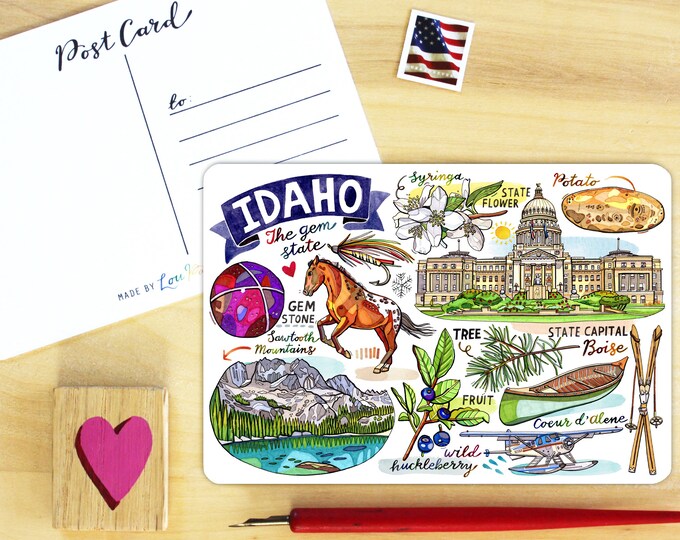 Post Card
to:
MADE BY Lou
IDAHO
The gem
state
Syringa
STATE
FLOWER
Potato
GEM
STONE
Sawtooth
Mountains
TREE
STATE CAPITAL
Boise
FRUIT
wild
huckleberry
Coeur d'Alene